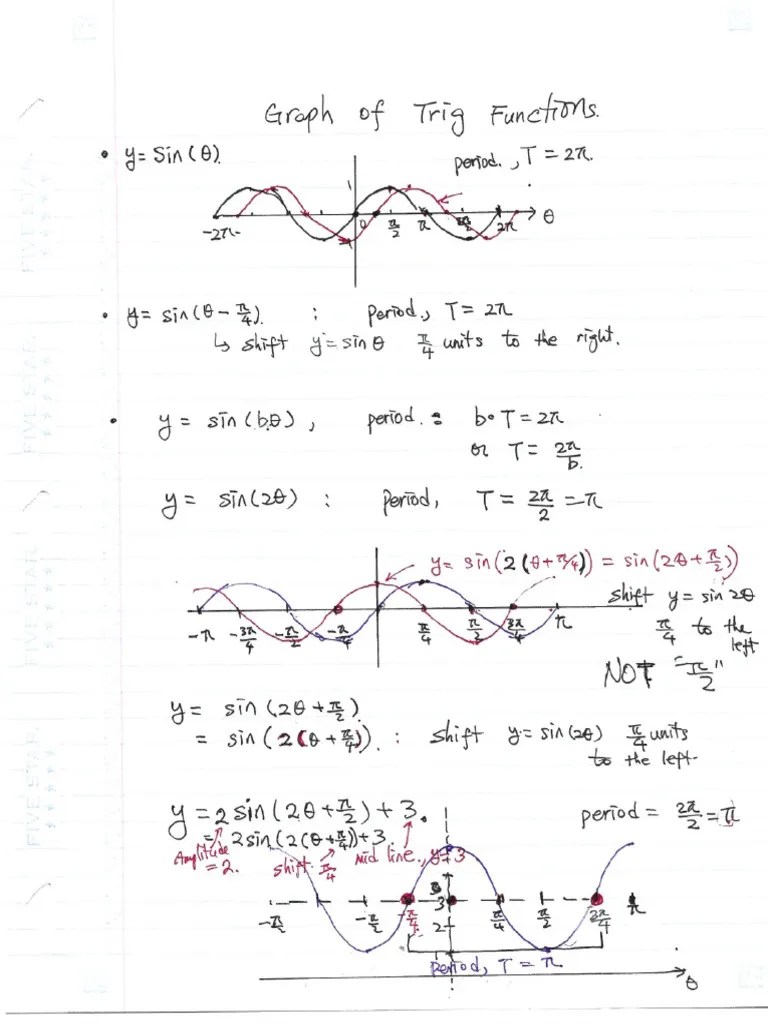 Graph of Trig Functions.
• y = Sin(θ). period., T = 2π.
1
-2π 0 π/2 π 3π/2 2π θ
• y = sin(θ - π/4). : period, T = 2π
↳ shift y = sin θ π/4 units to the right.
• y = sin(bθ), period. = b • T = 2π
or T = 2π/b.
y = sin(2θ) : period, T = 2π/2 = π
y = sin(2(θ + π/4)) = sin(2θ + π/2)
shift y = sin 2θ
π/4 to the left
NOT "π/2"
-π -3π/4 -π/2 -π/4 π/4 π/2 3π/4 π
y = sin(2θ + π/2)
= sin(2(θ + π/4)). : shift y = sin(2θ) π/4 units
to the left.
y = 2 sin(2θ + π/2) + 3. period = 2π/2 = π
= 2 sin(2(θ + π/4)) + 3.
Amplitude = 2. shift π/4 mid line, y = 3
3
-π/2 -π/2 -π/4 π/4 π/2 π
2
period, T = π
θ
FIVE STAR
FIVE STAR
FIVE STAR
FIVE STAR